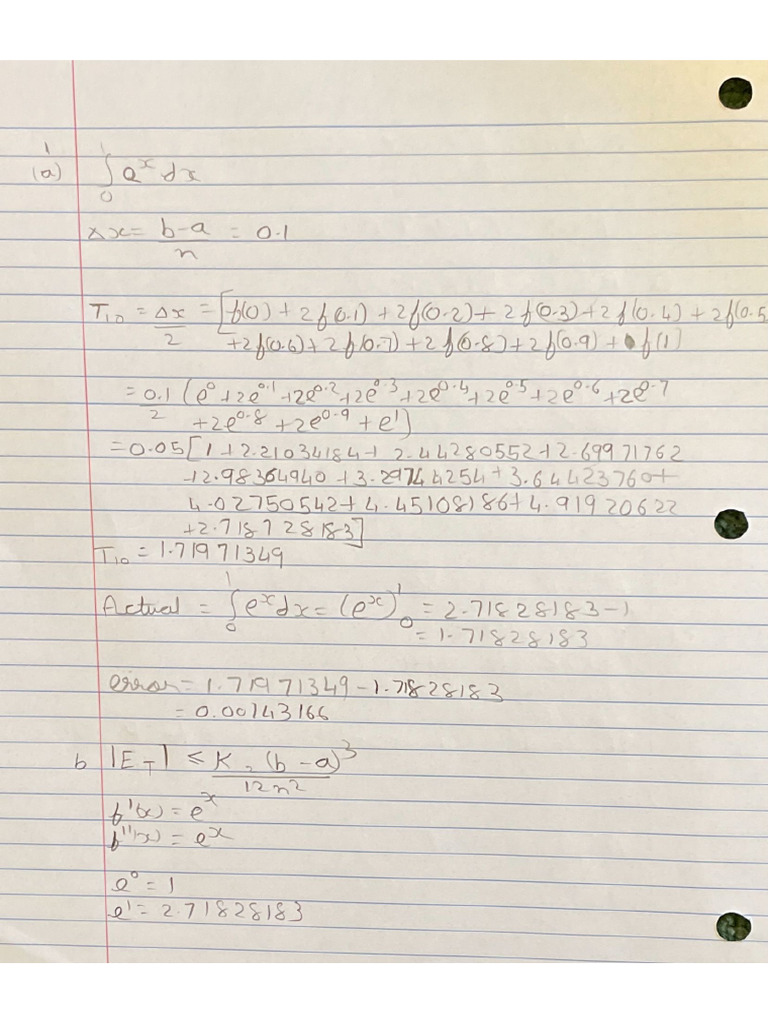 1
(a) ∫₀¹ eˣ dx
Δx = b-a/n = 0.1
T₁₀ = Δx/2 = [f(0) + 2f(0.1) + 2f(0.2) + 2f(0.3) + 2f(0.4) + 2f(0.5
+2f(0.6) + 2f(0.7) + 2f(0.8) + 2f(0.9) + f(1)]
= 0.1/2 (e⁰ + 2e^0.1 + 2e^0.2 + 2e^0.3 + 2e^0.4 + 2e^0.5 + 2e^0.6 + 2e^0.7
+2e^0.8 + 2e^0.9 + e¹)
= 0.05[1 + 2.21034184 + 2.44280552 + 2.69971762
+2.98364940 + 3.29744254 + 3.64423760 +
4.02750542 + 4.45108186 + 4.91920622
+2.718728183]
T₁₀ = 1.71971349
Actual = ∫₀¹ eˣ dx = (eˣ)₀¹ = 2.71828183 - 1
= 1.71828183
error = 1.71971349 - 1.71828183
= 0.00143166
b |E_T| ≤ K . (b - a)³/12n²
f'(x) = eˣ
f''(x) = eˣ
e⁰ = 1
e¹ = 2.71828183